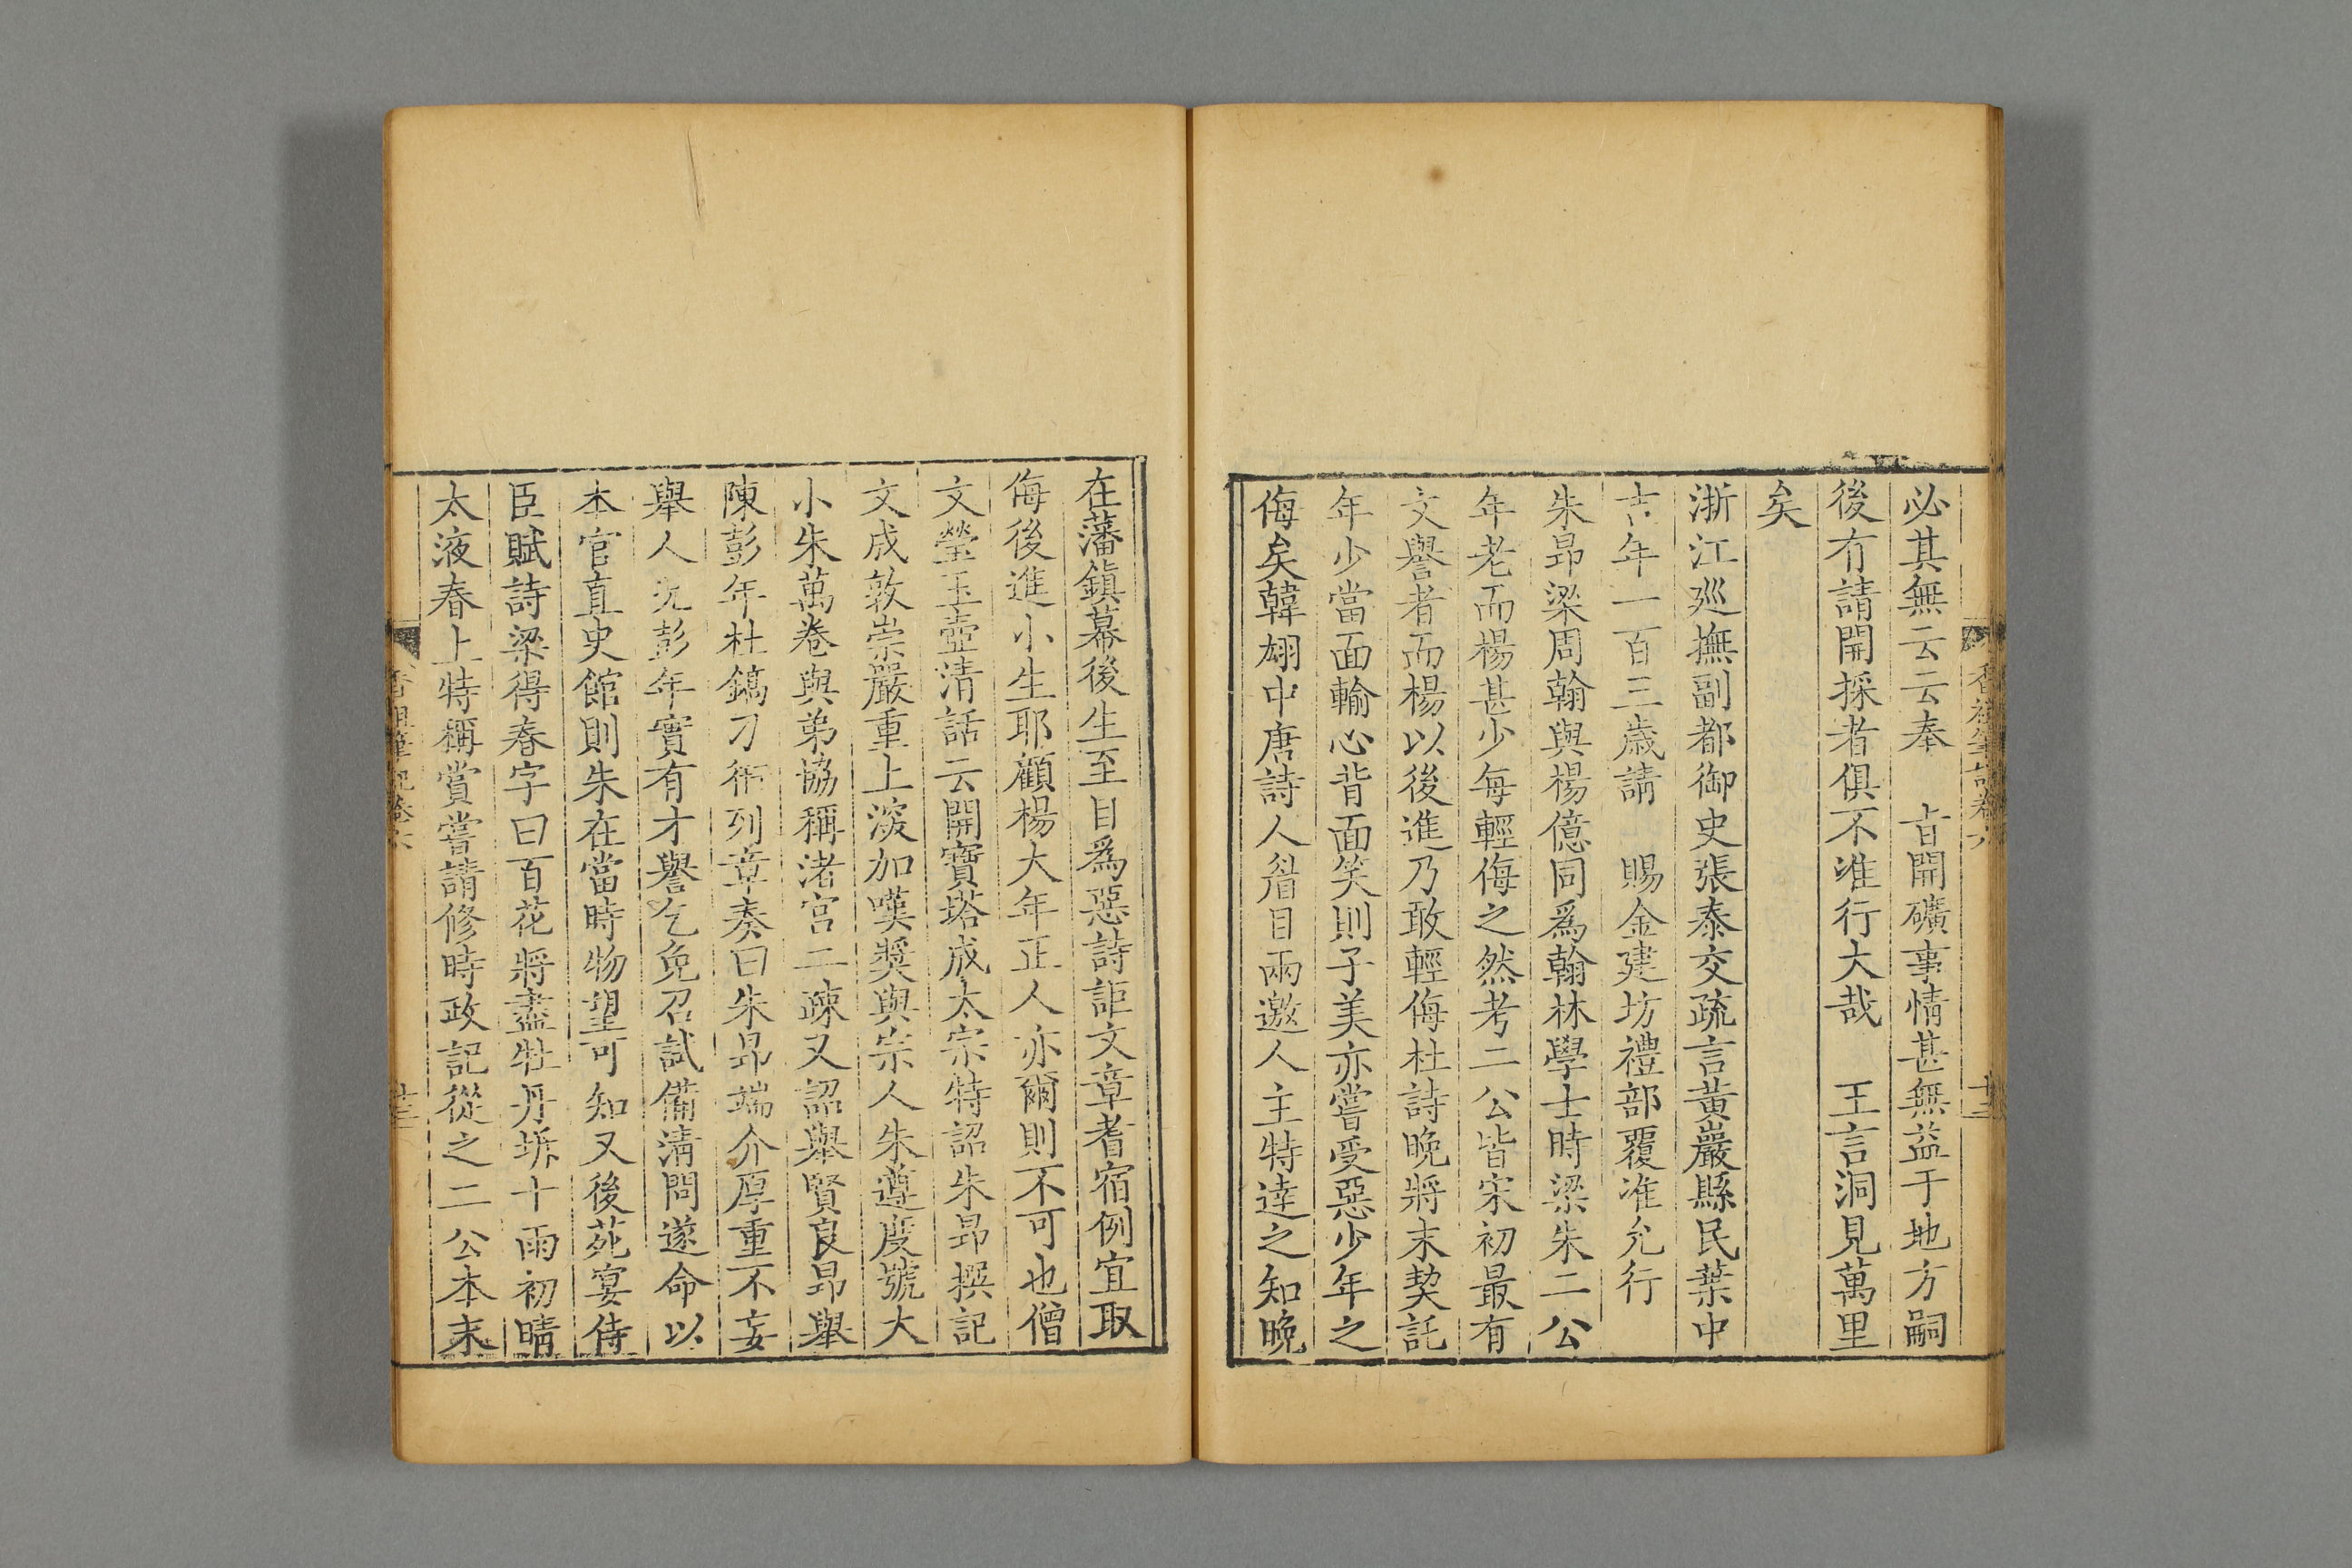 香祖筆記卷六
十二
必其無云云奉　旨開礦事情甚無益于地方嗣
後有請開採者俱不准行大哉　王言洞見萬里
矣
浙江廵撫副都御史張泰交疏言黃巖縣民葉中
吉年一百三歲請　賜金建坊禮部覆准允行
朱昂梁周翰與楊億同爲翰林學士時梁朱二公
年老而楊甚少每輕侮之然考二公皆宋初最有
文譽者而楊以後進乃敢輕侮杜詩晚將末契託
年少當面輸心背面笑則子美亦嘗受惡少年之
侮矣韓翃中唐詩人眉目兩邀人主特達之知晚
在藩鎮幕後生至目爲惡詩詎文章耆宿例宜取
侮後進小生耶顧楊大年正人亦爾則不可也僧
文瑩玉壺清話云開寶塔成太宗特詔朱昂撰記
文成敦崇嚴重上深加嘆奬與宗人朱遵度號大
小朱萬卷與弟協稱渚宮二疎又詔舉賢良昂舉
陳彭年杜鎬刁衎列章奏曰朱昂端介厚重不妄
舉人况彭年實有才譽乞免召試備清問遂命以
本官直史館則朱在當時物望可知又後苑宴侍
臣賦詩梁得春字曰百花將盡牡丹坼十雨初晴
太液春上特稱賞嘗請修時政記從之二公本末
香祖筆記卷六
十三